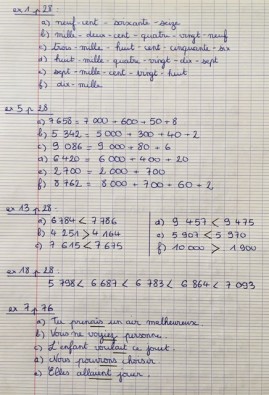 ex 1 p 28 :
a) neuf - cent - soixante - seize
b) mille - deux - cent - quatre - vingt - neuf
c) trois - mille - huit - cent - cinquante - six
d) huit - mille - quatre - vingt - dix - sept
e) sept - mille - cent - vingt - huit
f) dix - mille
ex 5 p 28
a) 7 658 = 7 000 + 600 + 50 + 8
b) 5 342 = 5 000 + 300 + 40 + 2
c) 9 086 = 9 000 + 80 + 6
d) 6 420 = 6 000 + 400 + 20
e) 2 700 = 2 000 + 700
f) 8 762 = 8 000 + 700 + 60 + 2
ex 13 p 28 :
a) 6 784 < 7 786
b) 4 251 > 4 164
c) 7 615 < 7 675
d) 9 457 < 9 475
e) 5 907 < 5 970
f) 10 000 > 1 900
ex 18 p 28 :
5 798 < 6 687 < 6 783 < 6 864 < 7 093
ex 7 p 76
a) Tu prenais un air malheureux.
b) Vous ne voyiez personne.
c) L'enfant voulait ce jouet.
d) Nous pouvions choisir.
e) Elles allaient jouer.